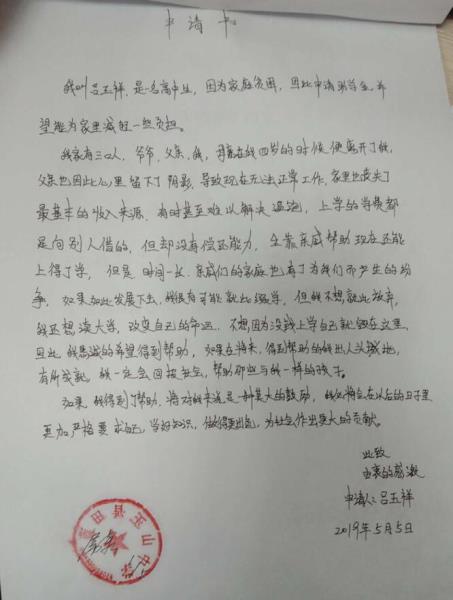 申请书
我叫吕五祥，是一名高中生，因为家庭贫困，因此申请助学金，希
望能为家里减轻一些负担。
我家有三口人，爷爷，父亲，我，母亲在我四岁的时候便离开了我，
父亲也因此心里留下了阴影，导致现在无法正常工作，家里也丧失了
最基本的收入来源，有时甚至难以解决温饱，上学的学费都
是向别人借的，但却没有偿还能力，全靠亲戚帮助现在还能
上得了学，但是时间一长，亲戚们的家庭也有了为我们而产生的纷
争，如果如此发展下去，我很有可能就此辍学，但我不想就此放弃，
我还想读大学，改变自己的命运，不想因为没钱上学自己就毁在这里，
因此，我恳诚的希望得到帮助，如果在将来，得到帮助的我出人头地，
有所成就，我一定会回报社会，帮助那些与我一样的孩子。
如果我得到了帮助，将对我来说是一种莫大的鼓励，我必将会在以后的日子里
更加严格要求自己，学好知识，做得更出色，为社会作出更大的贡献。
此致
由衷的感激
申请人：吕五祥
2019年5月5日